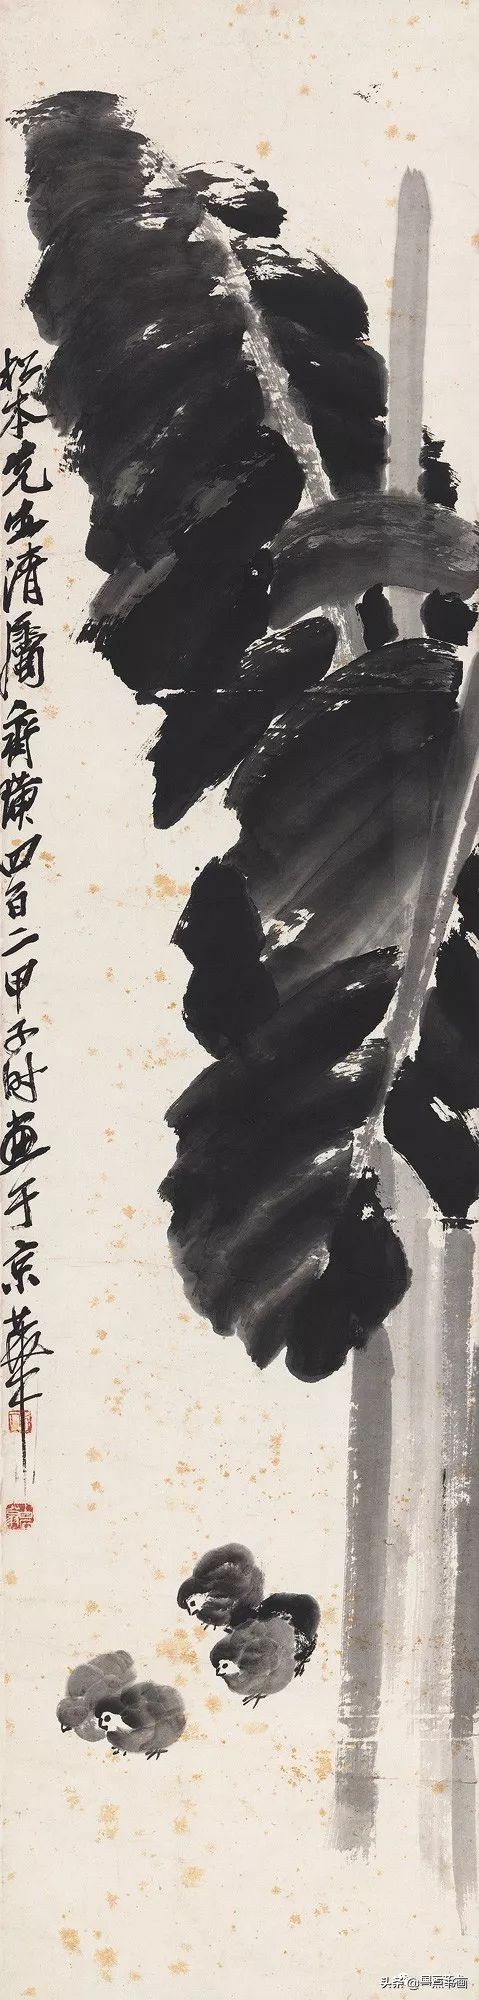 松本先生清屬齊璜四百二甲子时画于京華
头条